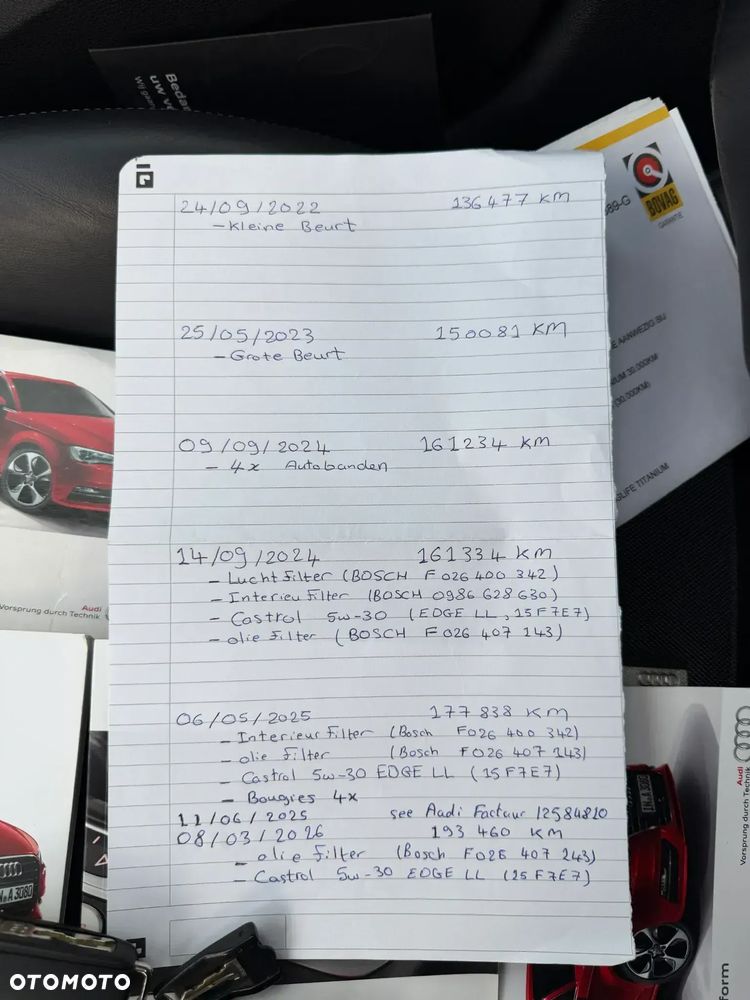 Bedan
uw ve
24/09/2022 136477 KM
- Kleine Beurt
25/05/2023 150081 KM
- Grote Beurt
09/09/2024 161234 KM
- 4x Autobanden
14/09/2024 161334 KM
- Lucht Filter (BOSCH F 026 400 342)
- Interieu Filter (BOSCH 0986 628 630)
- Castrol 5w-30 (EDGE LL, 15F7E7)
- olie Filter (BOSCH F 026 407 143)
06/05/2025 177 838 KM
- Interieur Filter (Bosch F026 400 342)
- olie Filter (Bosch F026 407 143)
- Castrol 5w-30 EDGE LL (15F7E7)
- Bougies 4x
11/06/2025 see Audi Factuur 12584810
08/03/2026 193 460 KM
- olie Filter (Bosch F026 407 243)
- Castrol 5w-30 EDGE LL (25F7E7)
89-G
BOVAG
GARANTIE
E AANWEZIG BIJ
UM 30.000KM
(30.000KM)
GLIFE TITANIUM
Audi
Vorsprung durch Technik
Audi
Vorsprung durch Technik
form
OTOMOTO